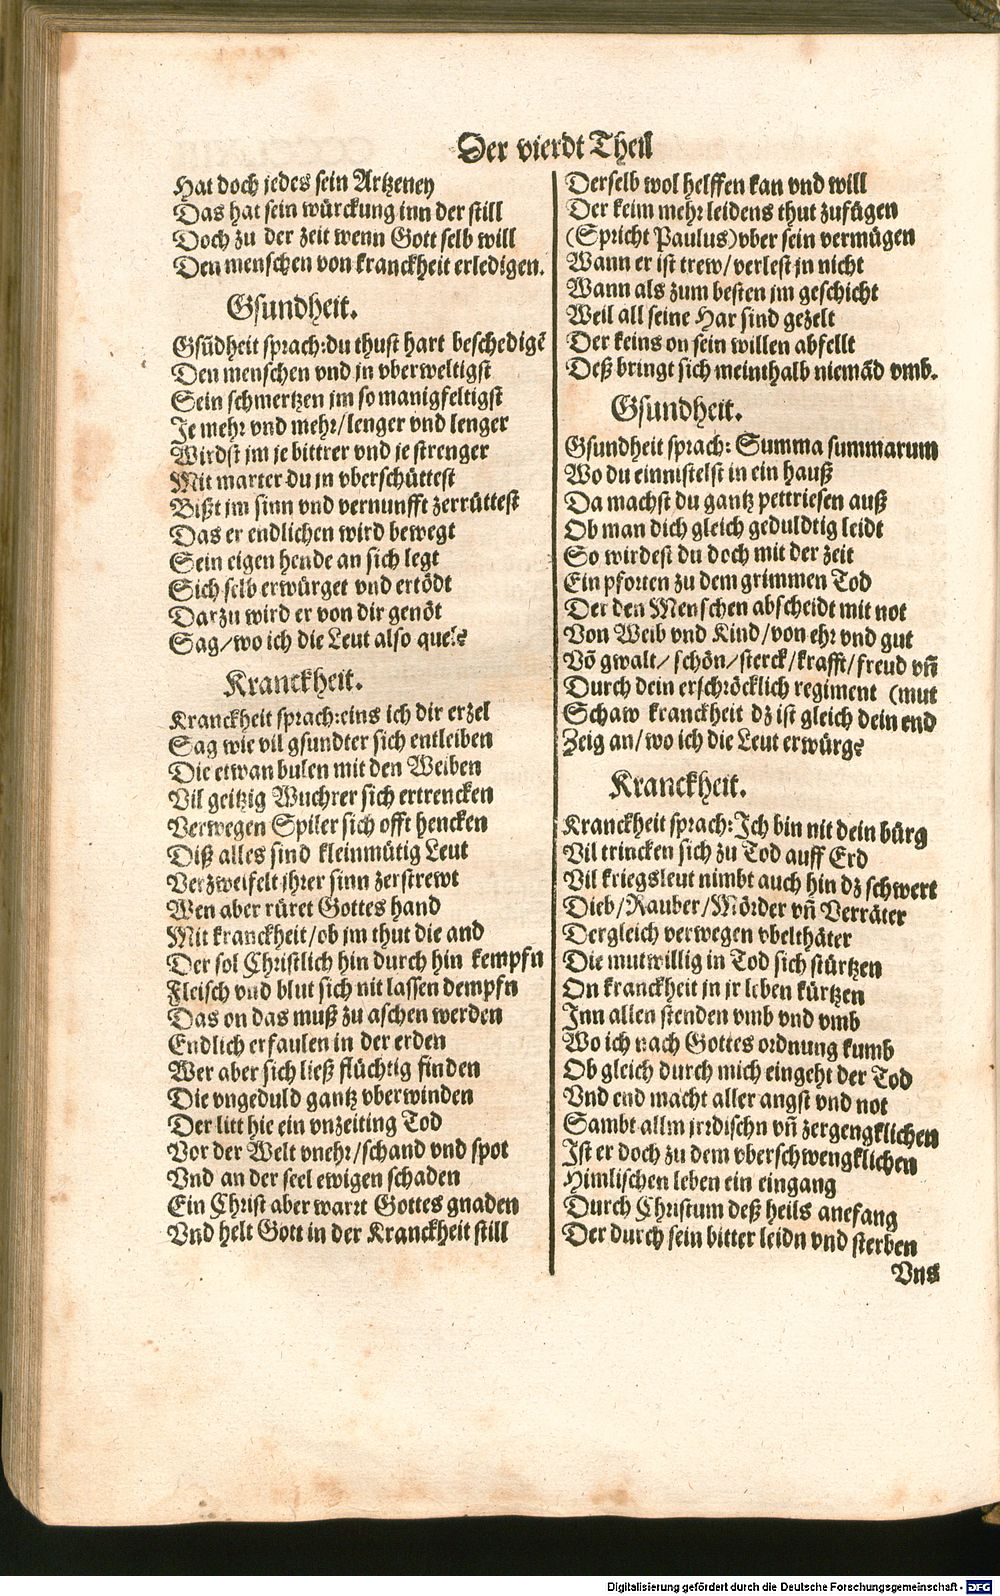 Der vierdt Theil
Hat doch jedes sein Artzeney
Das hat sein würckung inn der still
Doch zu der zeit wenn Gott selb will
Den menschen von kranckheit erledigen.
Gsundheit.
Gsūdheit sprach:du thust hart beschedigē
Den menschen vnd jn vberweltigst
Sein schmertzen jm so manigfeltigst
Je mehr vnd mehr/lenger vnd lenger
Wirdst jm je bittrer vnd je strenger
Mit marter du jn vberschüttest
Bißt jm sinn vnd vernunfft zerrüttest
Das er endlichen wird bewegt
Sein eigen hende an sich legt
Sich selb erwürget vnd ertödt
Darzu wird er von dir genöt
Sag/wo ich die Leut also quels
Kranckheit.
Kranckheit sprach:eins ich dir erzel
Sag wie vil gsundter sich entleiben
Die etwan bulen mit den Weiben
Vil geitzig Wuchrer sich ertrencken
Verwegen Spiler sich offt hencken
Diß alles sind kleinmütig Leut
Verzweifelt jhrer sinn zerstrewt
Wen aber rüret Gottes hand
Mit kranckheit/ob jm thut die and
Der sol Christlich hin durch hin kempfn
Fleisch vnd blut sich nit lassen dempfn
Das on das muß zu aschen werden
Endlich erfaulen in der erden
Wer aber sich ließ flüchtig finden
Die vngeduld gantz vberwinden
Der litt hie ein vnzeiting Tod
Vor der Welt vnehr/schand vnd spot
Vnd an der seel ewigen schaden
Ein Christ aber wart Gottes gnaden
Vnd helt Gott in der Kranckheit still
Derselb wol helffen kan vnd will
Der keim mehr leidens thut zufügen
(Spricht Paulus)vber sein vermügen
Wann er ist trew/verlest jn nicht
Wann als zum besten jm geschicht
Weil all seine Har sind gezelt
Der keins on sein willen abfellt
Deß bringt sich meinthalb niemād vmb.
Gsundheit.
Gsundheit sprach: Summa summarum
Wo du einnistelst in ein hauß
Da machst du gantz pettriesen auß
Ob man dich gleich geduldtig leidt
So wirdest du doch mit der zeit
Ein pforten zu dem grimmen Tod
Der den Menschen abscheidt mit not
Von Weib vnd Kind/von ehr vnd gut
Vō gwalt/schön/sterck/krafft/freud vn̄
Durch dein erschröcklich regiment (mut
Schaw kranckheit dz ist gleich dein end
Zeig an/wo ich die Leut erwürgs
Kranckheit.
Kranckheit sprach:Ich bin nit dein bürg
Vil trincken sich zu Tod auff Erd
Vil kriegsleut nimbt auch hin dz schwert
Dieb/Rauber/Mörder vn̄ Verräter
Dergleich verwegen vbelthäter
Die mutwillig in Tod sich stürtzen
On kranckheit jn jr leben kürtzen
Inn allen stenden vmb vnd vmb
Wo ich nach Gottes ordnung kumb
Ob gleich durch mich eingeht der Tod
Vnd end macht aller angst vnd not
Sambt allm jrrdischn vn̄ zergengklichen
Ist er doch zu dem vberschwengklichen
Himlischen leben ein eingang
Durch Christum deß heils anefang
Der durch sein bitter leidn vnd sterben
Vns
Digitalisierung gefördert durch die Deutsche Forschungsgemeinschaft - DFG